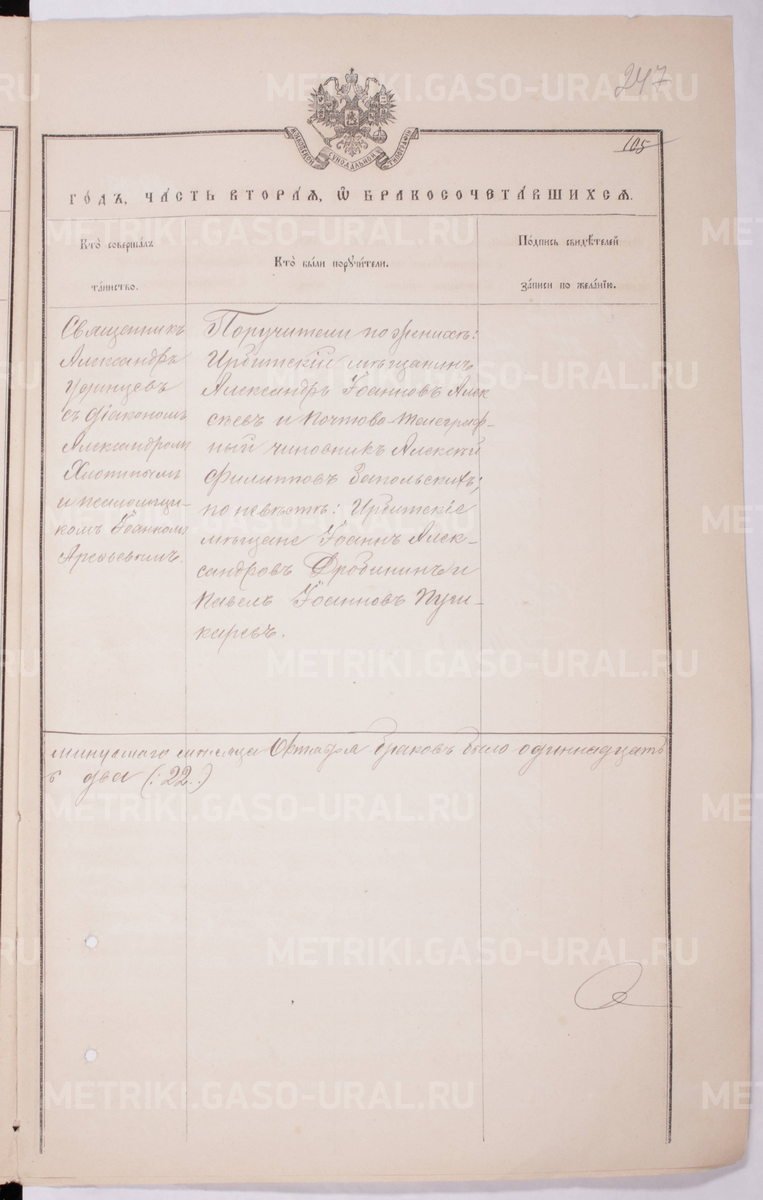 247
105
МОСКОВСКОЙ СѴНОДАЛЬНОЙ ТИПОГРАФІИ
ГОДЪ, ЧАСТЬ ВТОРАЯ, Ѿ БРАКОСОЧЕТАВШИХСЯ.
Кто совершалъ
таинство.
Кто были поручители.
Подпись свидѣтелей
записи по желанію.
Священникъ
Александръ
съ діакономъ
Александромъ
Хлопинымъ
и псаломщи-
комъ Іоанномъ
Арефьевымъ.
Поручители по женихѣ:
Ирбитскій мѣщанинъ
Александръ Іоанновъ Алек
сѣевъ и Почтово-Телеграф-
ный чиновникъ Алексѣй
Филипповъ Запольскихъ;
по невѣстѣ: Ирбитскіе
мѣщане Іоаннъ Алек-
сандровъ Дробининъ и
Павелъ Іоанновъ Пуш-
каревъ.
минувшаго мѣсяца Октября браковъ было одиннадцать
два (:22.)
METRIKI.GASO-URAL.RU